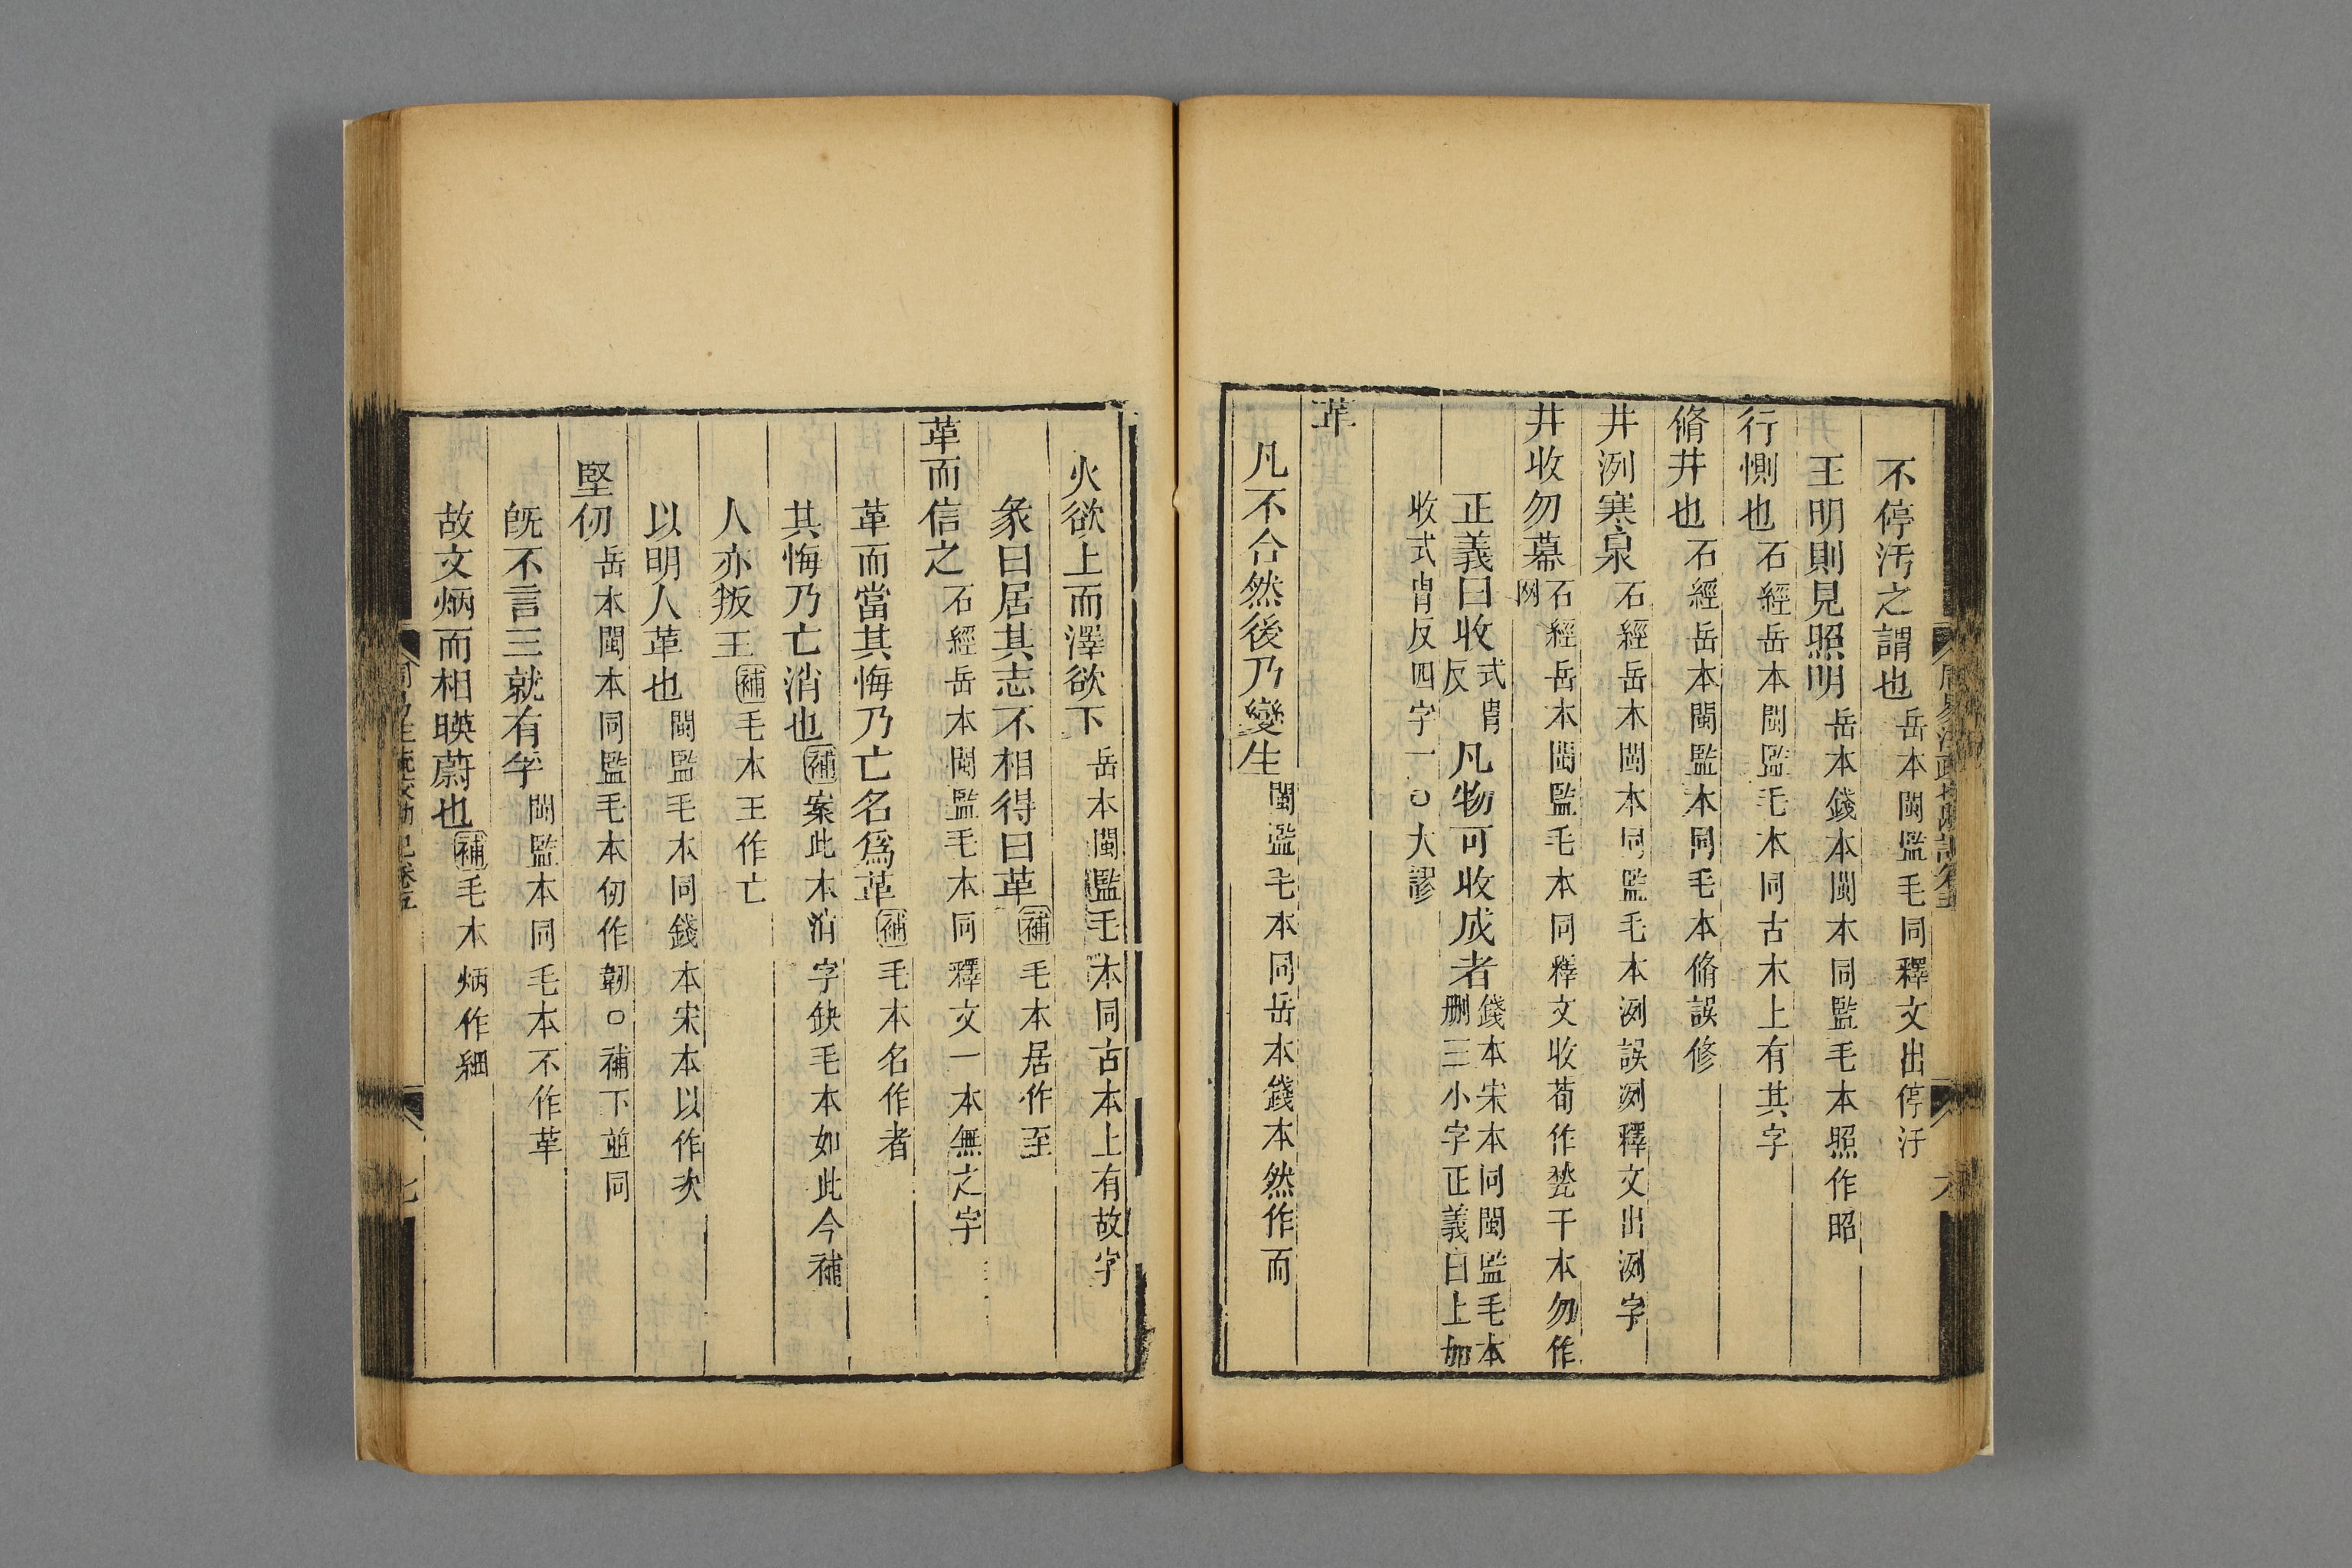 不停汚之謂也岳本閩監毛同釋文出停汙
王明則見照明岳本錢本閩本同監毛本照作昭
行惻也石經岳本閩監毛本同古本上有其字
脩井也石經岳本閩監本同毛本脩誤修
井洌寒泉石經岳本閩本同監毛本洌誤冽釋文出洌字
井收勿幕石經岳本閩監毛本同釋文收荀作甃干本勿作
网
正義曰收式冑反凡物可收成者錢本宋本同閩監毛本
删三小字正義曰上如
收式冑反四字一○大謬
革
凡不合然後乃變生閩監毛本同岳本錢本然作而
火欲上而澤欲下岳本閩監毛本同古本上有故字
彖曰居其志不相得曰革補毛本居作至
革而信之石經岳本閩監毛本同釋文一本無之字
革而當其悔乃亡名爲革補毛本名作者
其悔乃亡消也補案此本消字缺毛本如此今補
人亦叛王補毛本王作亡
以明人革也閩監毛本同錢本宋本以作次
堅仞岳本閩本同監毛本仞作韌○補下並同
旣不言三就有孚閩監本同毛本不作革
故文炳而相暎蔚也補毛本炳作細
七